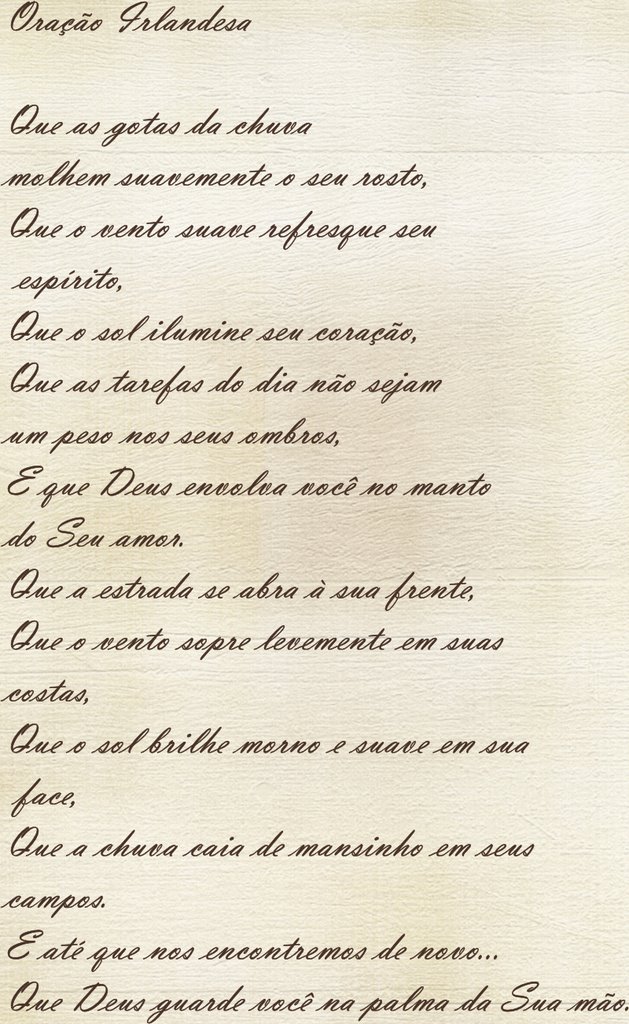 Oração Irlandesa
Que as gotas da chuva
molhem suavemente o seu rosto,
Que o vento suave refresque seu
espírito,
Que o sol ilumine seu coração,
Que as tarefas do dia não sejam
um peso nos seus ombros,
E que Deus envolva você no manto
do Seu amor.
Que a estrada se abra à sua frente,
Que o vento sopre levemente em suas
costas,
Que o sol brilhe morno e suave em sua
face,
Que a chuva caia de mansinho em seus
campos.
E até que nos encontremos de novo...
Que Deus guarde você na palma da Sua mão.